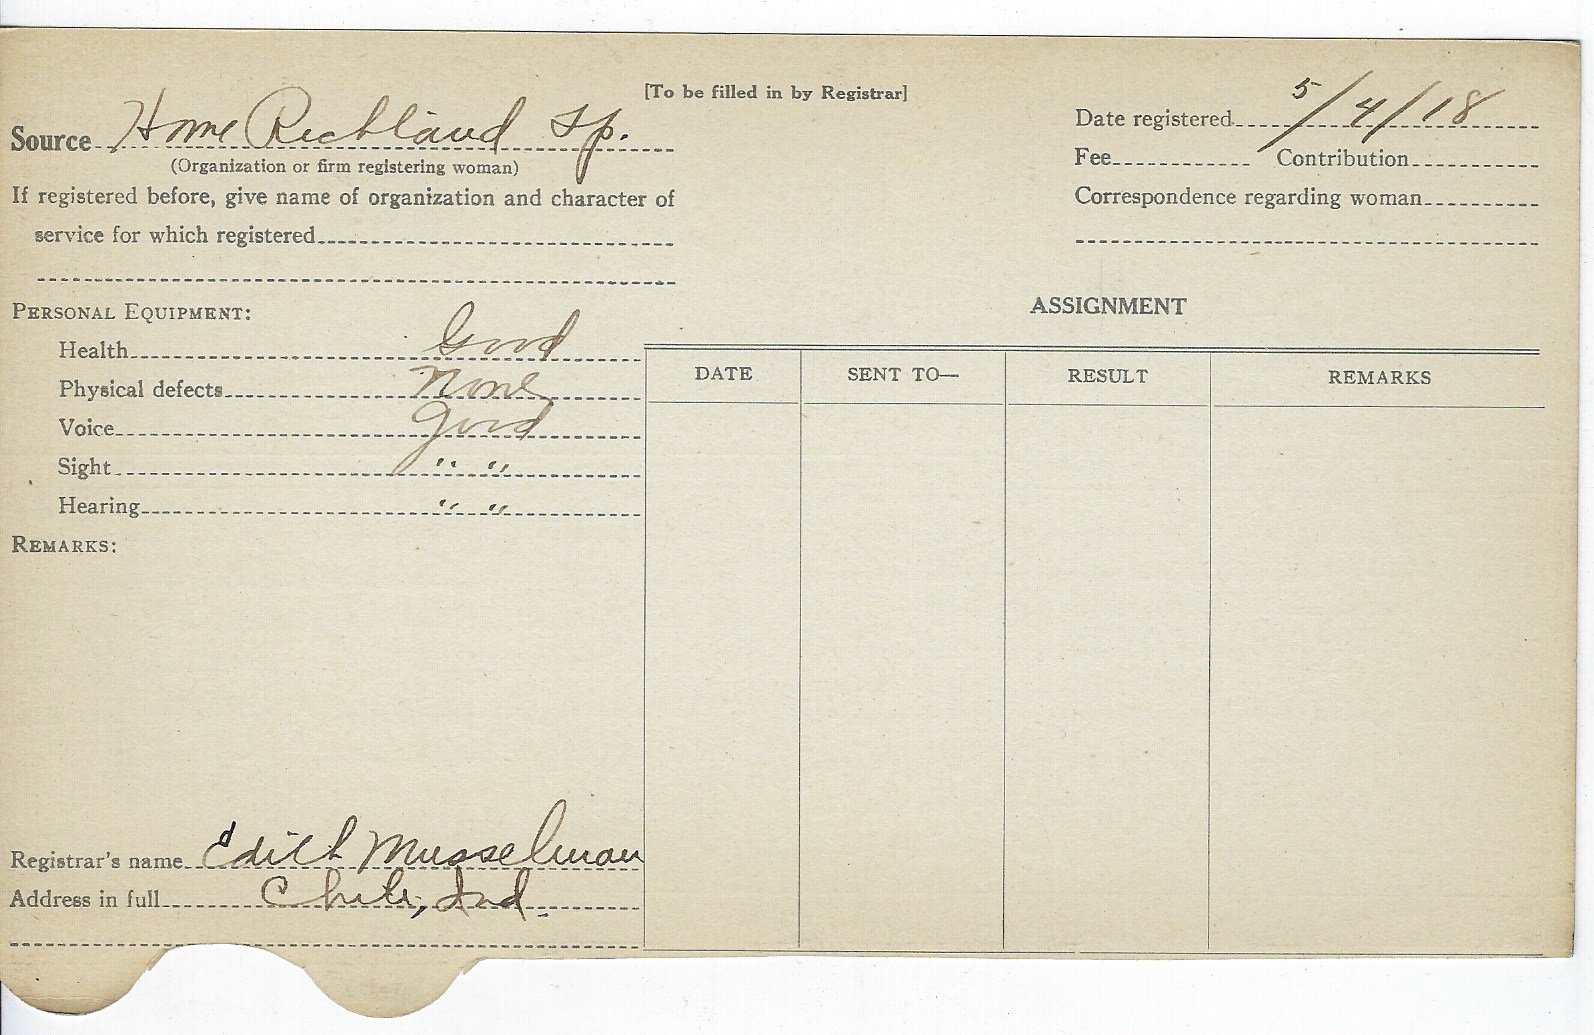 [To be filled in by Registrar]
Source Home Richland Tp.
(Organization or firm registering woman)
If registered before, give name of organization and character of
service for which registered
Date registered 5/4/18
Fee Contribution
Correspondence regarding woman
PERSONAL EQUIPMENT:
Health Good
Physical defects None
Voice Good
Sight " "
Hearing " "
REMARKS:
ASSIGNMENT
DATE SENT TO— RESULT REMARKS
Registrar's name Edith Musselman
Address in full Chili, Ind.